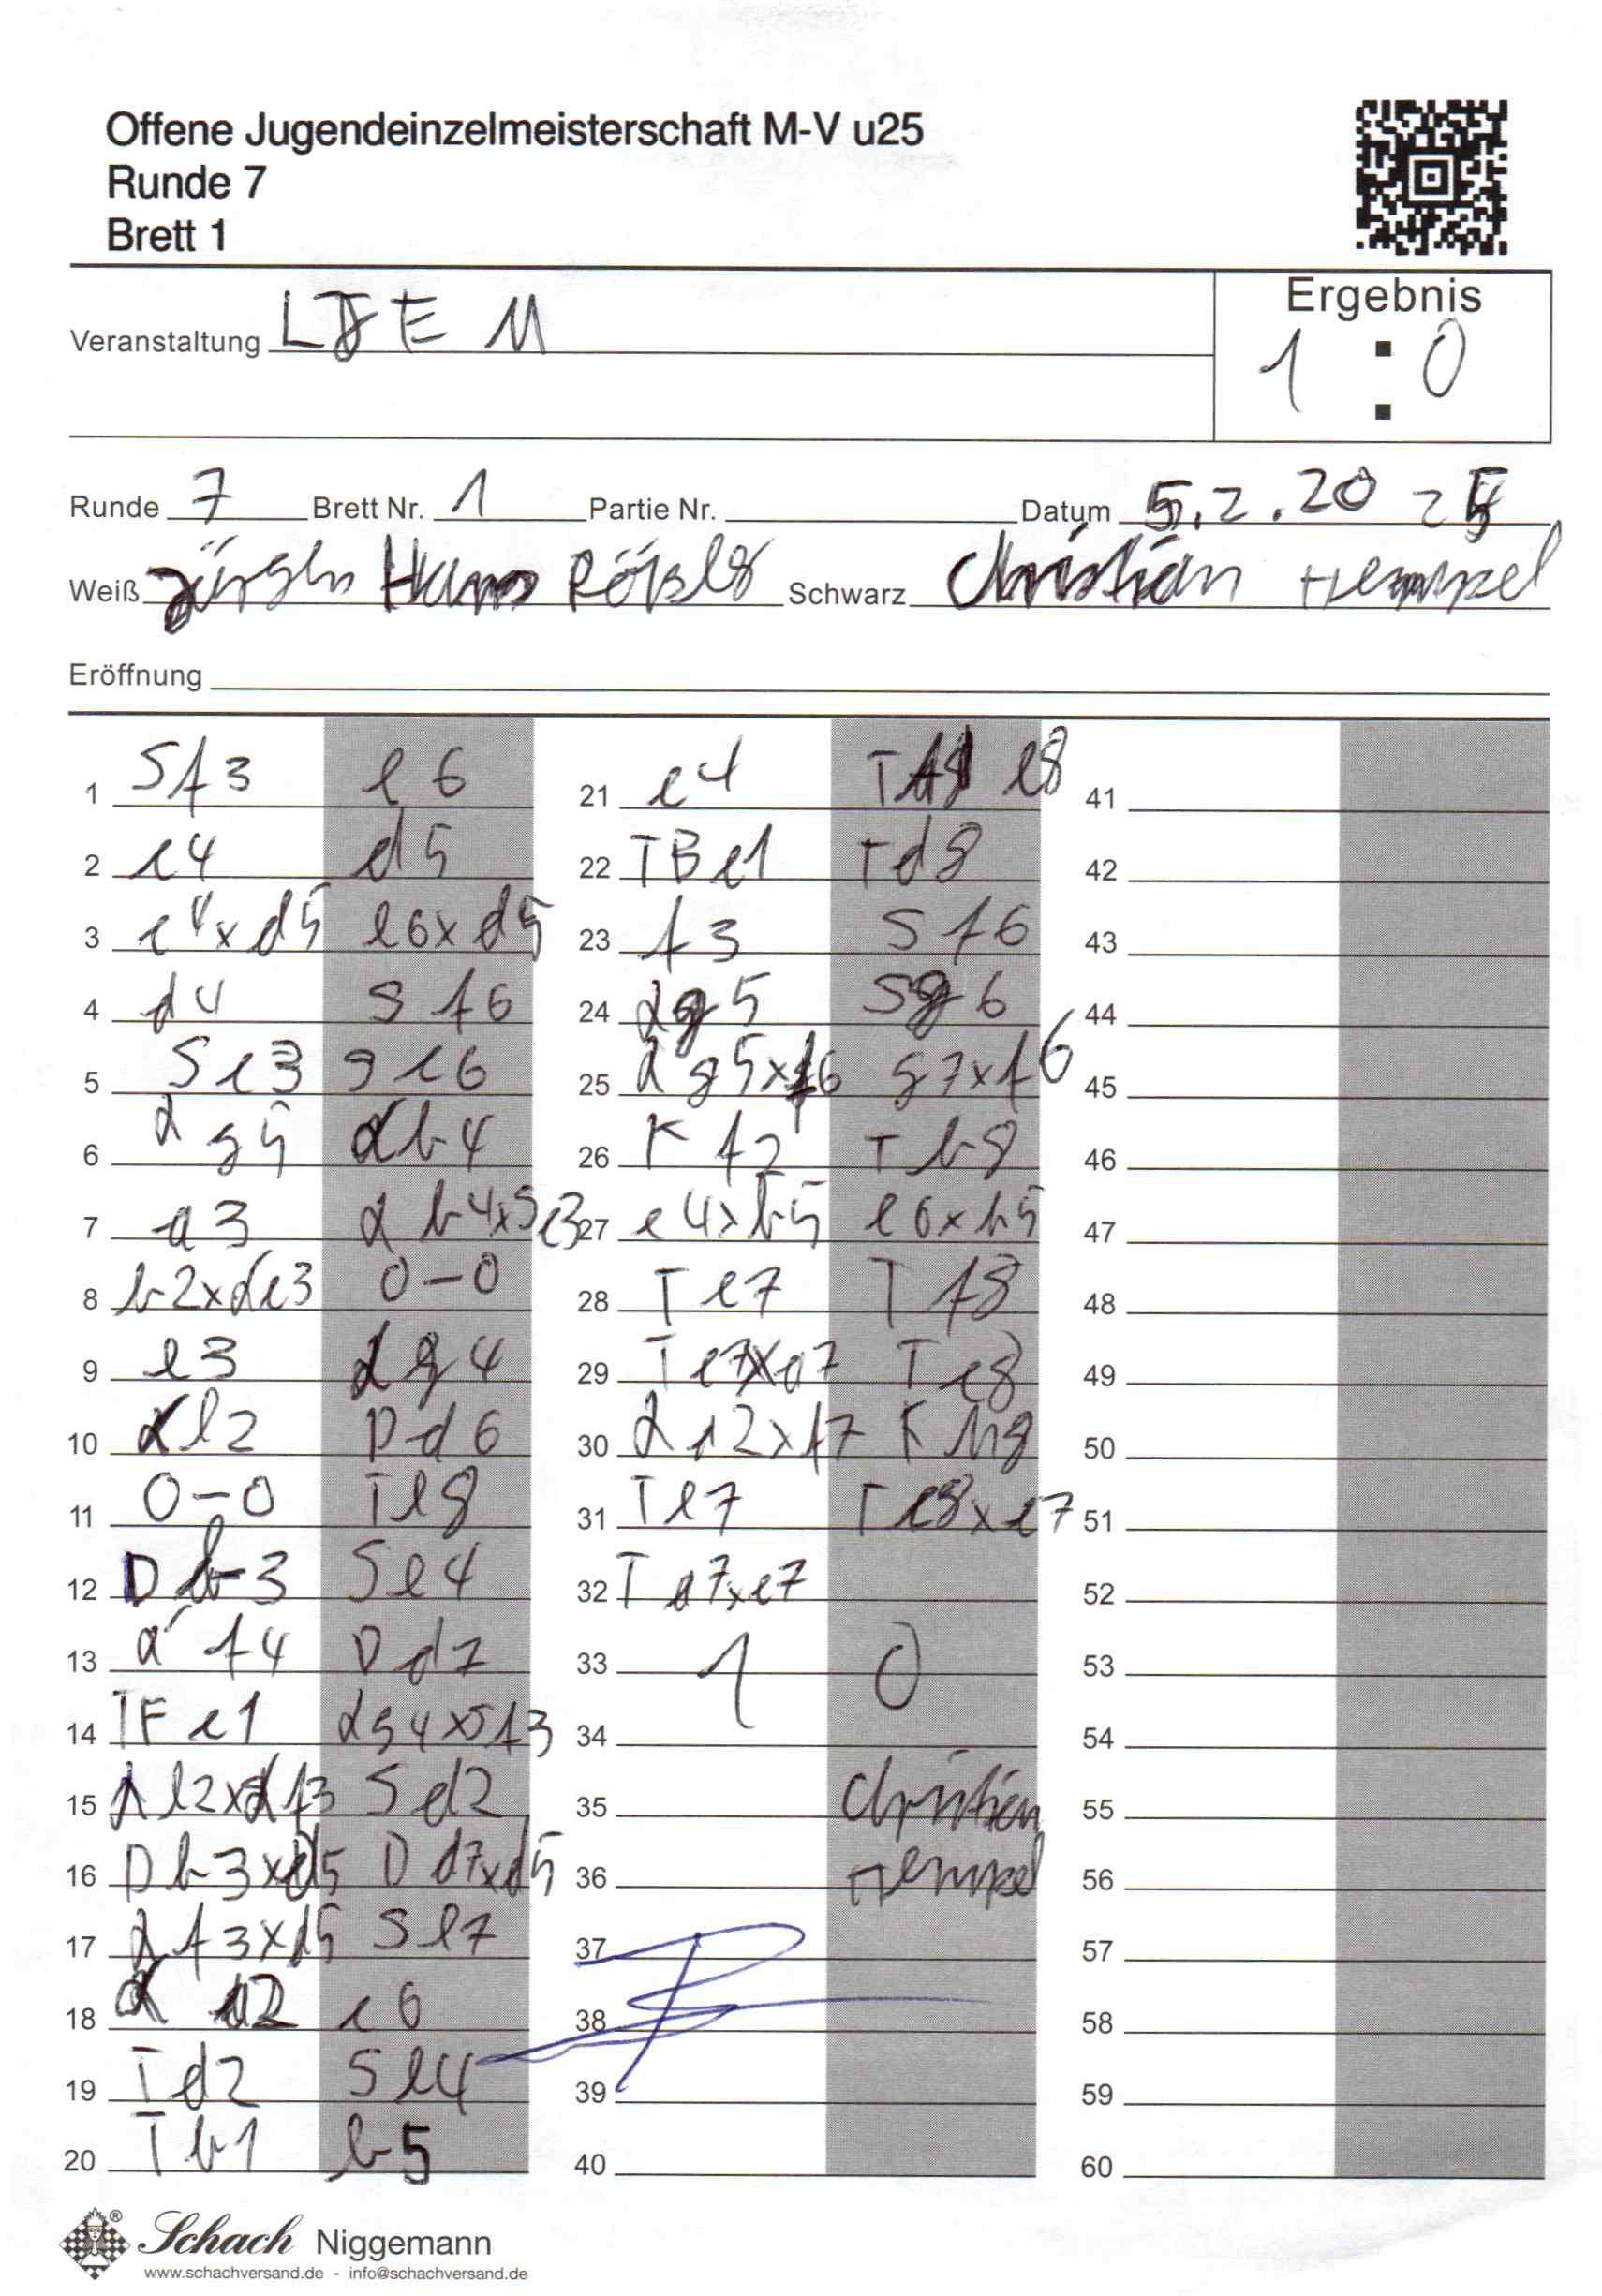 Offene Jugendeinzelmeisterschaft M-V u25
Runde 7
Brett 1
Ergebnis
1 : 0
Veranstaltung LJEM
Runde 7 Brett Nr. 1 Partie Nr. Datum 5.2.2025
Weiß Jürgen Hans Rößler Schwarz Christian Hempel
Eröffnung
1 Sf3 e6
2 c4 d5
3 c4xd5 e6xd5
4 d4 Sf6
5 Sc3 Sc6
6 Lg5 Lb4
7 a3 Lb4xSc3
8 b2xLc3 0-0
9 e3 Lg4
10 Le2 Dd6
11 0-0 Te8
12 Db3 Se4
13 Lf4 Dd7
14 TFc1 Lg4xSf3
15 Le2xLf3 Sd2
16 Db3xd5 Dd7xd5
17 Lf3xd5 Se7
18 La2 c6
19 Td2 Se4
20 Tb1 b5
21 c4 T e8
22 TBc1 Td8
23 f3 Sf6
24 Lg5 Sg6
25 Lg5xf6 g7xf6
26 Kf2 Tb8
27 c4xb5 c6xb5
28 Tc7 Tf8
29 Tc7xa7 Tc8
30 La2xf7 Kh8
31 Tc7 Tc8xc7
32 Ta7xc7
33 1 0
34
35 Christian
36 Hempel
37
38
39
40
41
42
43
44
45
46
47
48
49
50
51
52
53
54
55
56
57
58
59
60
Schach Niggemann
www.schachversand.de - info@schachversand.de